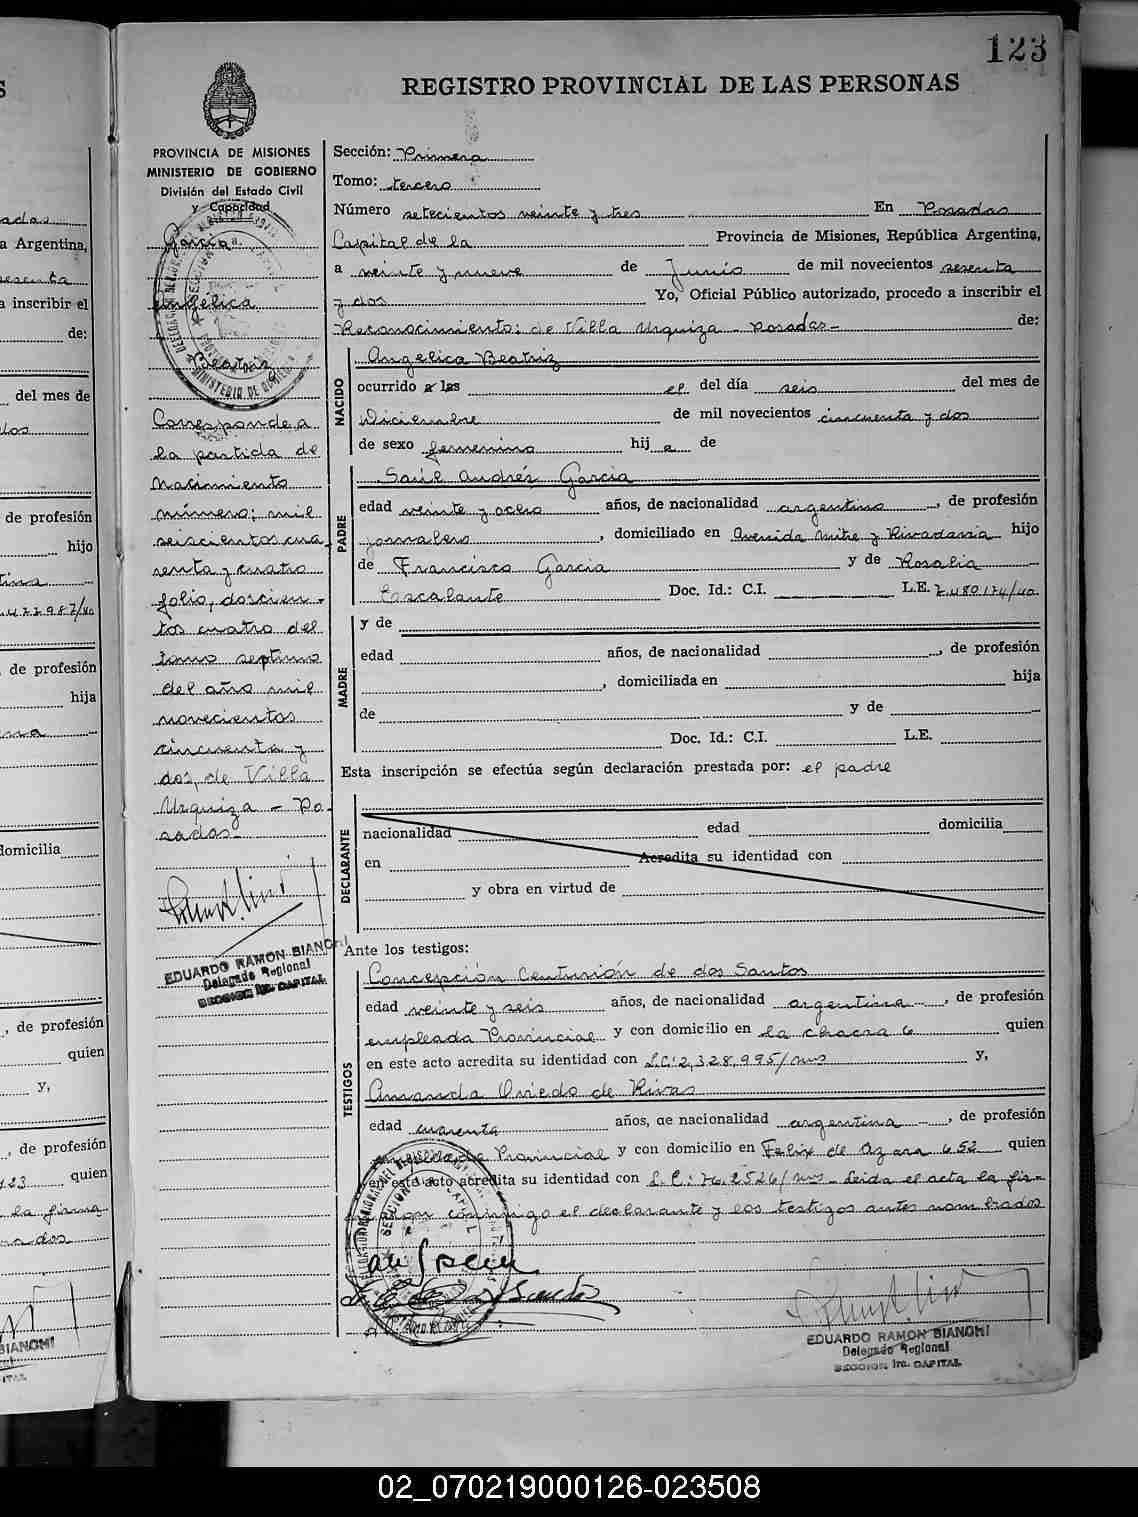 123
REGISTRO PROVINCIAL DE LAS PERSONAS
PROVINCIA DE MISIONES
MINISTERIO DE GOBIERNO
División del Estado Civil
y Capacidad
Garcia
Angélica
Beatriz
Corresponde a
la partida de
Nacimiento
número; mil
seiscientos cua
renta y cuatro
folio, doscien-
tos cuatro del
tomo septimo
del año mil
novecientos
cincuenta y
dos, de Villa
Urquiza - Po-
sadas-
EDUARDO RAMON BIANCHI
Delegado Regional
SECCION 1ra. CAPITAL
Sección: Primera
Tomo: tercero
Número setecientos veinte y tres En Posadas
Capital de la Provincia de Misiones, República Argentina,
a veinte y nueve de Junio de mil novecientos sesenta
y dos Yo, Oficial Público autorizado, procedo a inscribir el
Reconocimiento: de Villa Urquiza - Posadas- de:
NACIDO
Angelica Beatriz
ocurrido a las el del día seis del mes de
Diciembre de mil novecientos cincuenta y dos
de sexo femenino hij a de
PADRE
Saúl Andrés Garcia
edad veinte y ocho años, de nacionalidad argentino, de profesión
jornalero, domiciliado en Avenida Mitre y Rivadavia hijo
de Francisco Garcia y de Rosalia
Escalante Doc. Id.: C.I. L.E. 7.480174/40
MADRE
y de
edad años, de nacionalidad, de profesión
, domiciliada en hija
de y de
Doc. Id.: C.I. L.E.
Esta inscripción se efectúa según declaración prestada por: el padre
DECLARANTE
nacionalidad edad domicilia
en Acredita su identidad con
y obra en virtud de
Ante los testigos:
TESTIGOS
Concepción Centurión de dos Santos
edad veinte y seis años, de nacionalidad argentina, de profesión
empleada Provincial y con domicilio en la chacra 6 quien
en este acto acredita su identidad con L.C: 2,328,995/mns y,
Amanda Oviedo de Rivas
edad cuarenta años, de nacionalidad argentina, de profesión
empleada Provincial y con domicilio en Felix de Azara 652 quien
en este acto acredita su identidad con L.C: 76.2526/mns- Leida el acta la fir-
man conmigo el declarante y los testigos antes nombrados
EDUARDO RAMON BIANCHI
Delegado Regional
SECCION 1ra. CAPITAL
02_070219000126-023508